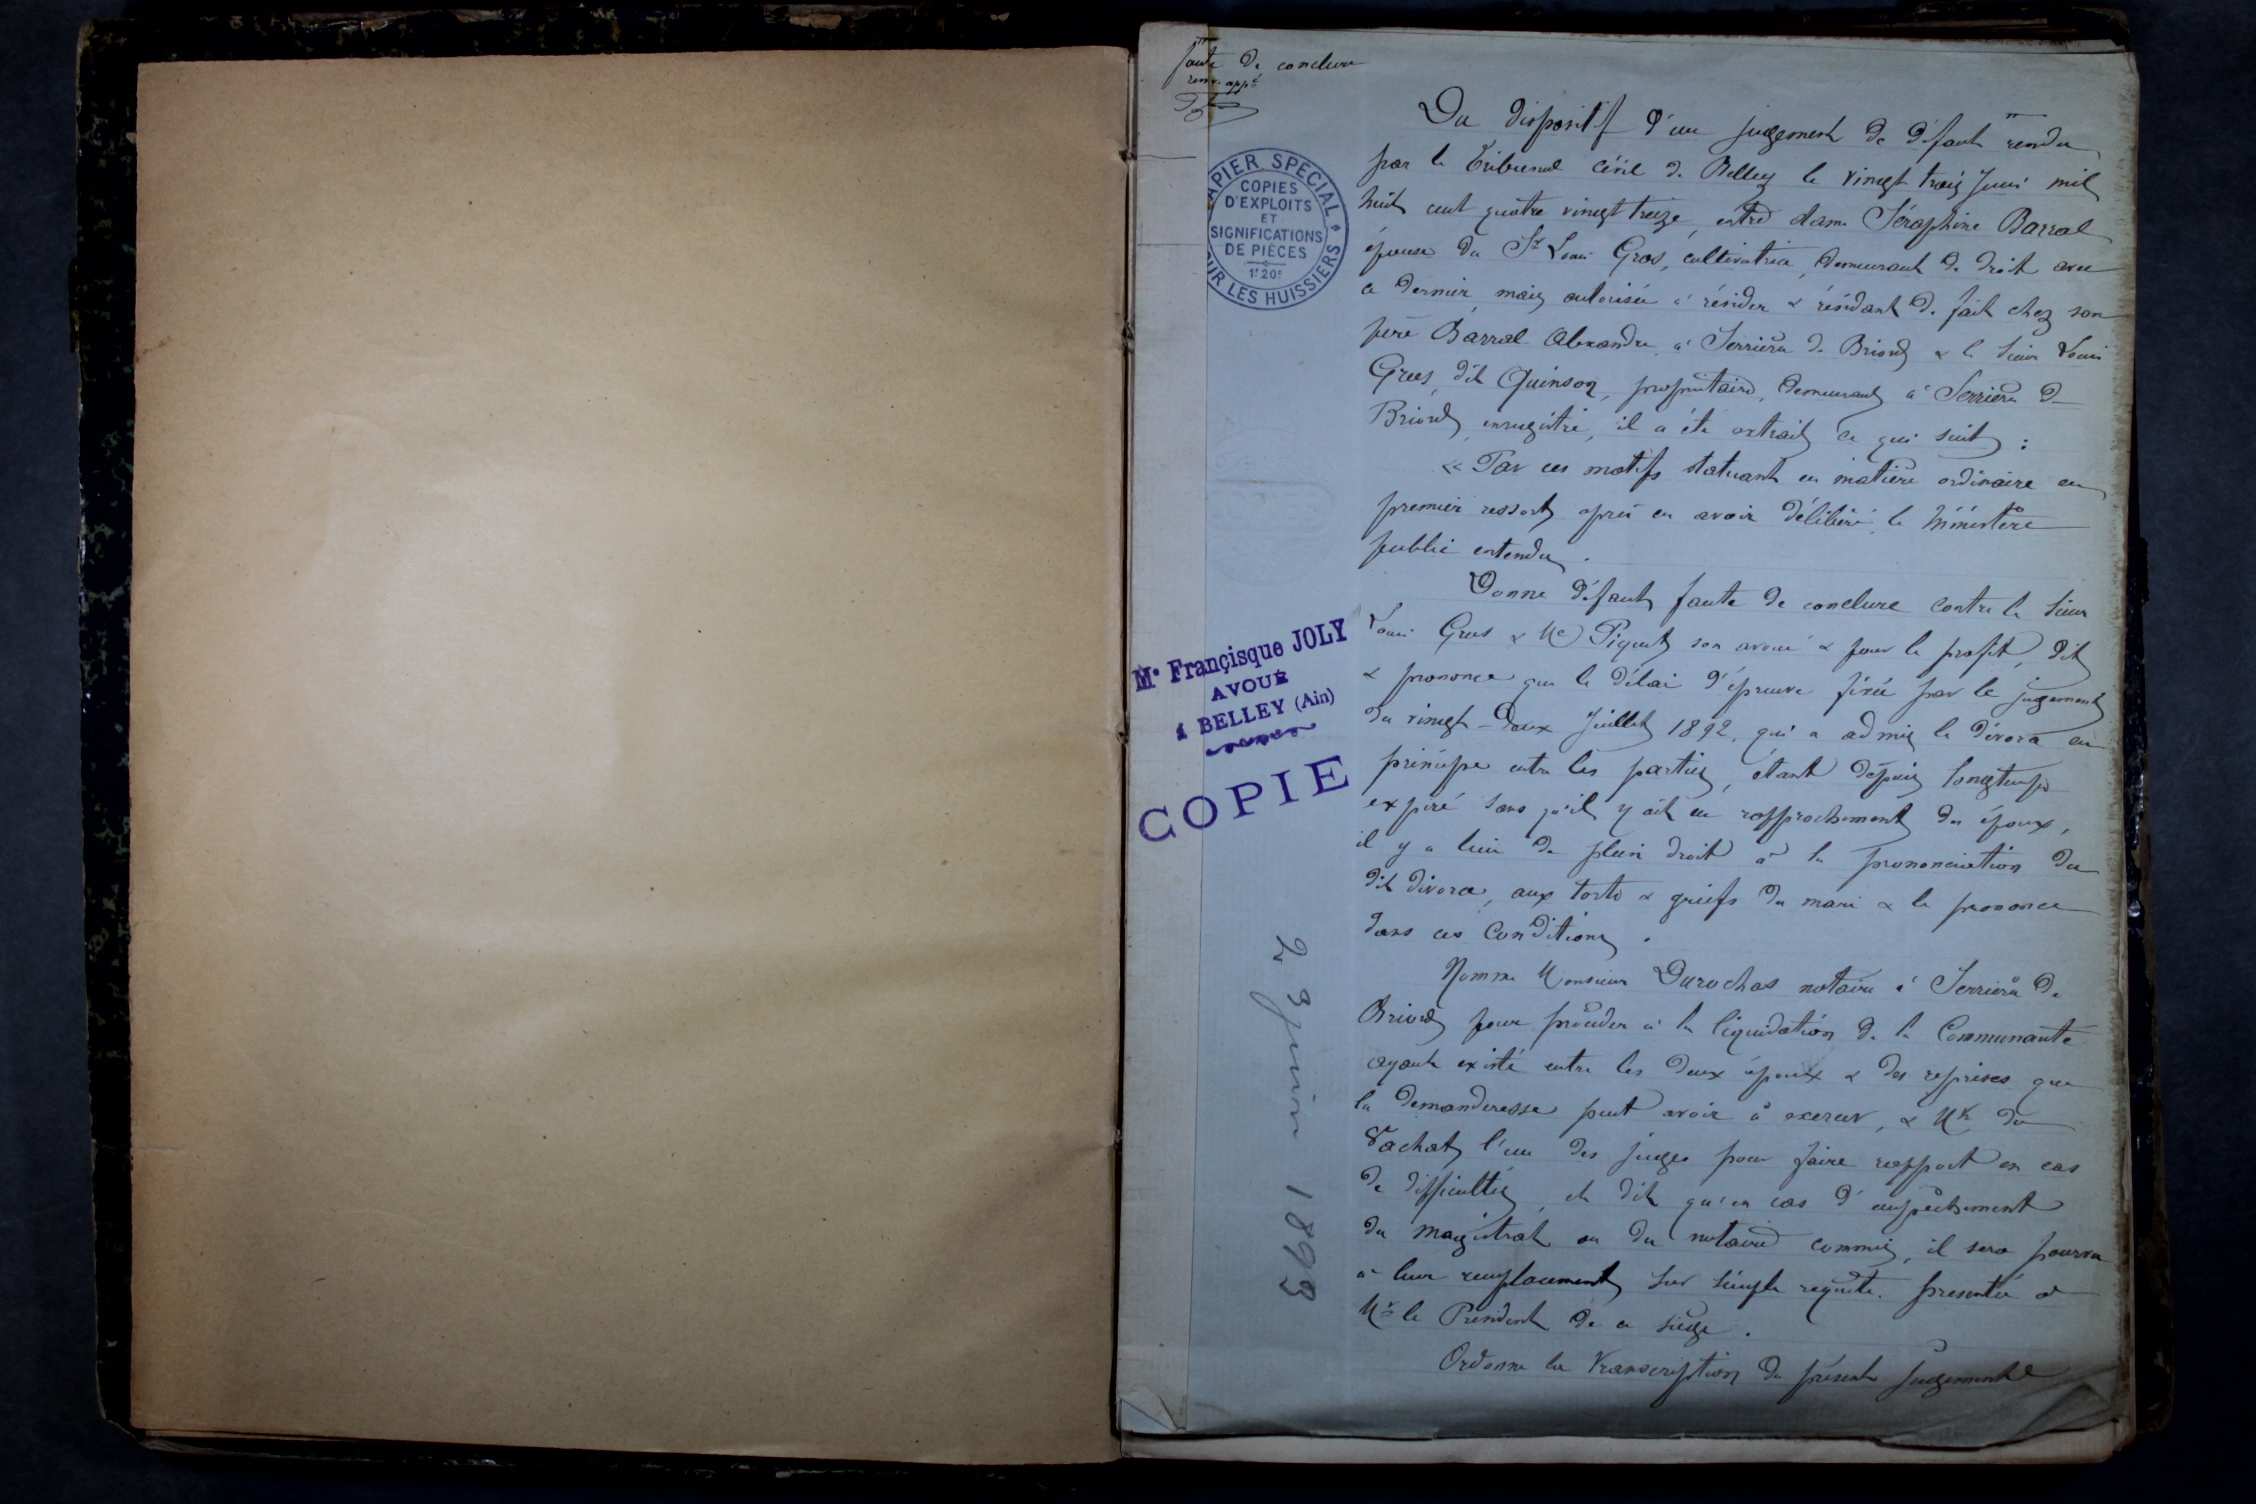 faute de conclure
renv. app.é
Du dispositif d'un jugement de défaut rendu
par le Tribunal Civil de Belley le vingt trois Juin mil
huit cent quatre vingt treize, entre dame Séraphine Barral
épouse du Sr Louis Gros, cultivatrice, demeurant de droit avec
ce dernier mais autorisée à résider & résidant de fait chez son
père Barral Alexandre à Serrières de Briord & le sieur Louis
Gros, dit Quinson, propriétaire, demeurant à Serrières de
Briord, enregistré, il a été extrait ce qui suit :
« Par ces motifs statuant en matière ordinaire en
premier ressort après en avoir délibéré le Ministère
public entendu.
Donne défaut faute de conclure contre le sieur
Louis Gros & Me Piquet son avoué & pour le profit, dit
& prononce que le délai d'épreuve fixé par le jugement
du vingt-deux Juillet 1892, qui a admis le divorce en
principe entre les parties, étant depuis longtemps
expiré sans qu'il y ait eu rapprochement des époux,
il y a lieu de plein droit à la prononciation du
dit divorce, aux torts & griefs du mari & le prononce
dans ces conditions.
Nomme Monsieur Durochas notaire à Serrières de
Briord pour procéder à la liquidation de la Communauté
ayant existé entre les deux époux & des reprises que
la demanderesse peut avoir à exercer, & Mr du
Vachat l'un des juges pour faire rapport en cas
de difficultés, et dit qu'en cas d'empêchement
du magistrat ou du notaire commis, il sera pourvu
à leur remplacement sur simple requête présentée à
Mr le Président de ce siège.
Ordonne la transcription du présent jugement
PAPIER SPECIAL
POUR LES HUISSIERS
COPIES
D'EXPLOITS
ET
SIGNIFICATIONS
DE PIÈCES
1f 20c
Me Françisque JOLY
AVOUÉ
à BELLEY (Ain)
COPIE
23 juin 1893